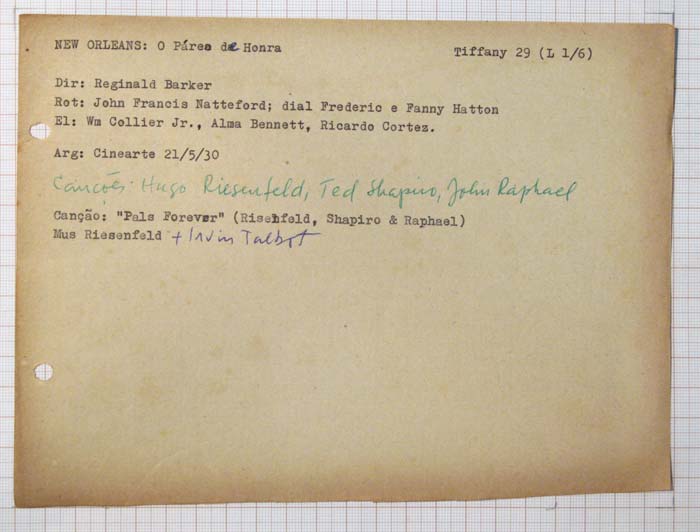 NEW ORLEANS: O Páreo de Honra Tiffany 29 (L 1/6)
Dir: Reginald Barker
Rot: John Francis Natteford; dial Frederic e Fanny Hatton
El: Wm Collier Jr., Alma Bennett, Ricardo Cortez.
Arg: Cinearte 21/5/30
Canções: Hugo Riesenfeld, Ted Shapiro, John Raphael
Canção: "Pals Forever" (Risenfeld, Shapiro & Raphael)
Mus Riesenfeld + Irvin Talbot